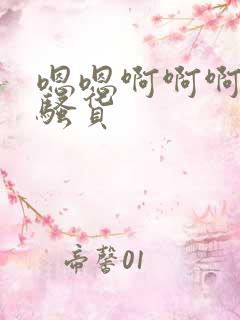 嗯嗯啊啊啊
骚货
帝馨01